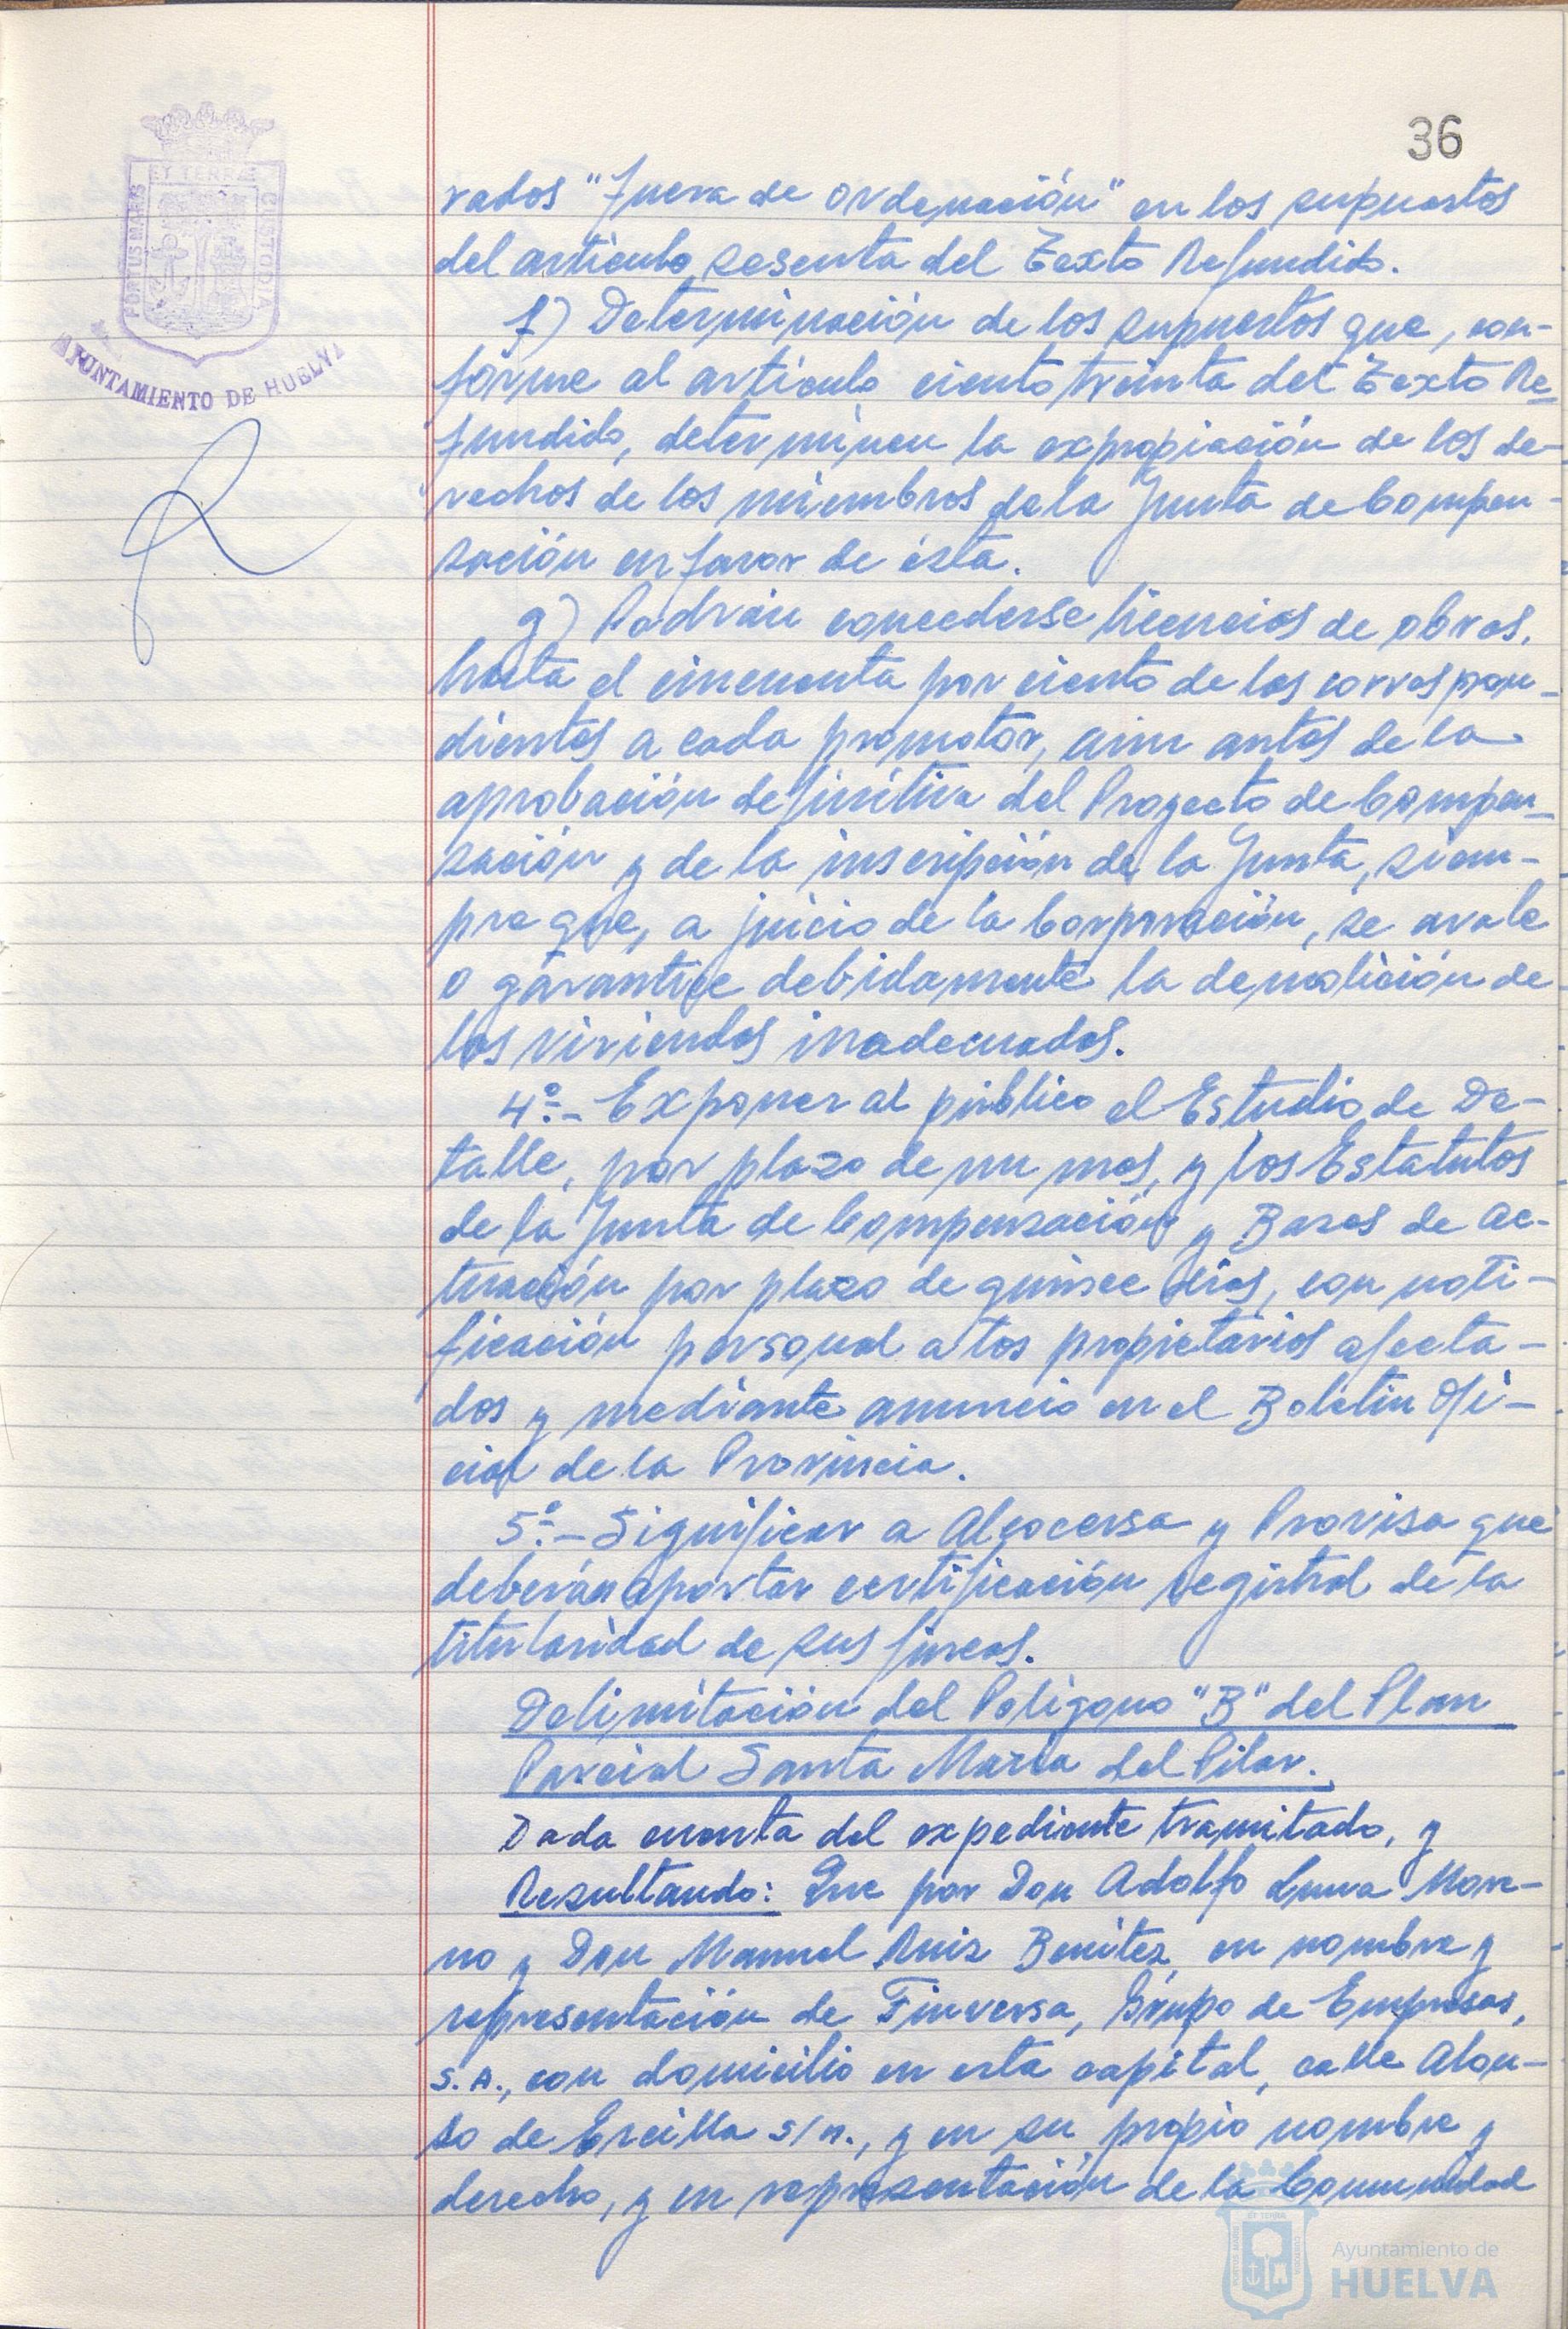 36
PORTUS MARIS ET TERRÆ CUSTODIA
AYUNTAMIENTO DE HUELVA
rados "fuera de ordenación" en los supuestos
del artículo sesenta del Texto Refundido.
f) Determinación de los supuestos que, con-
forme al artículo ciento treinta del Texto Re-
fundido, determinen la expropiación de los de-
rechos de los miembros de la Junta de Compen-
sación en favor de ésta.
g) Podrán concederse licencias de obras,
hasta el cincuenta por ciento de las correspon-
dientes a cada promotor, aún antes de la
aprobación definitiva del Proyecto de Compen-
sación y de la inscripción de la Junta, siem-
pre que, a juicio de la Corporación, se avale
o garantice debidamente la demolición de
las viviendas inadecuadas.
4º.- Exponer al público el Estudio de De-
talle, por plazo de un mes, y los Estatutos
de la Junta de Compensación y Bases de Ac-
tuación por plazo de quince días, con noti-
ficación personal a los propietarios afecta-
dos y mediante anuncio en el Boletín Ofi-
cial de la Provincia.
5º.- Significar a Algocersa y Provisa que
deberán aportar certificación registral de la
titularidad de sus fincas.
Delimitación del Polígono "B" del Plan
Parcial Santa María del Pilar.
Dada cuenta del expediente tramitado, y
Resultando: Que por Don Adolfo Luna More-
no y Don Manuel Ruiz Benítez, en nombre y
representación de Finversa, Grupo de Empresas,
S.A., con domicilio en esta capital, calle Alon-
so de Ercilla s/n., y en su propio nombre y
derecho, y en representación de la Comunidad
Ayuntamiento de
HUELVA